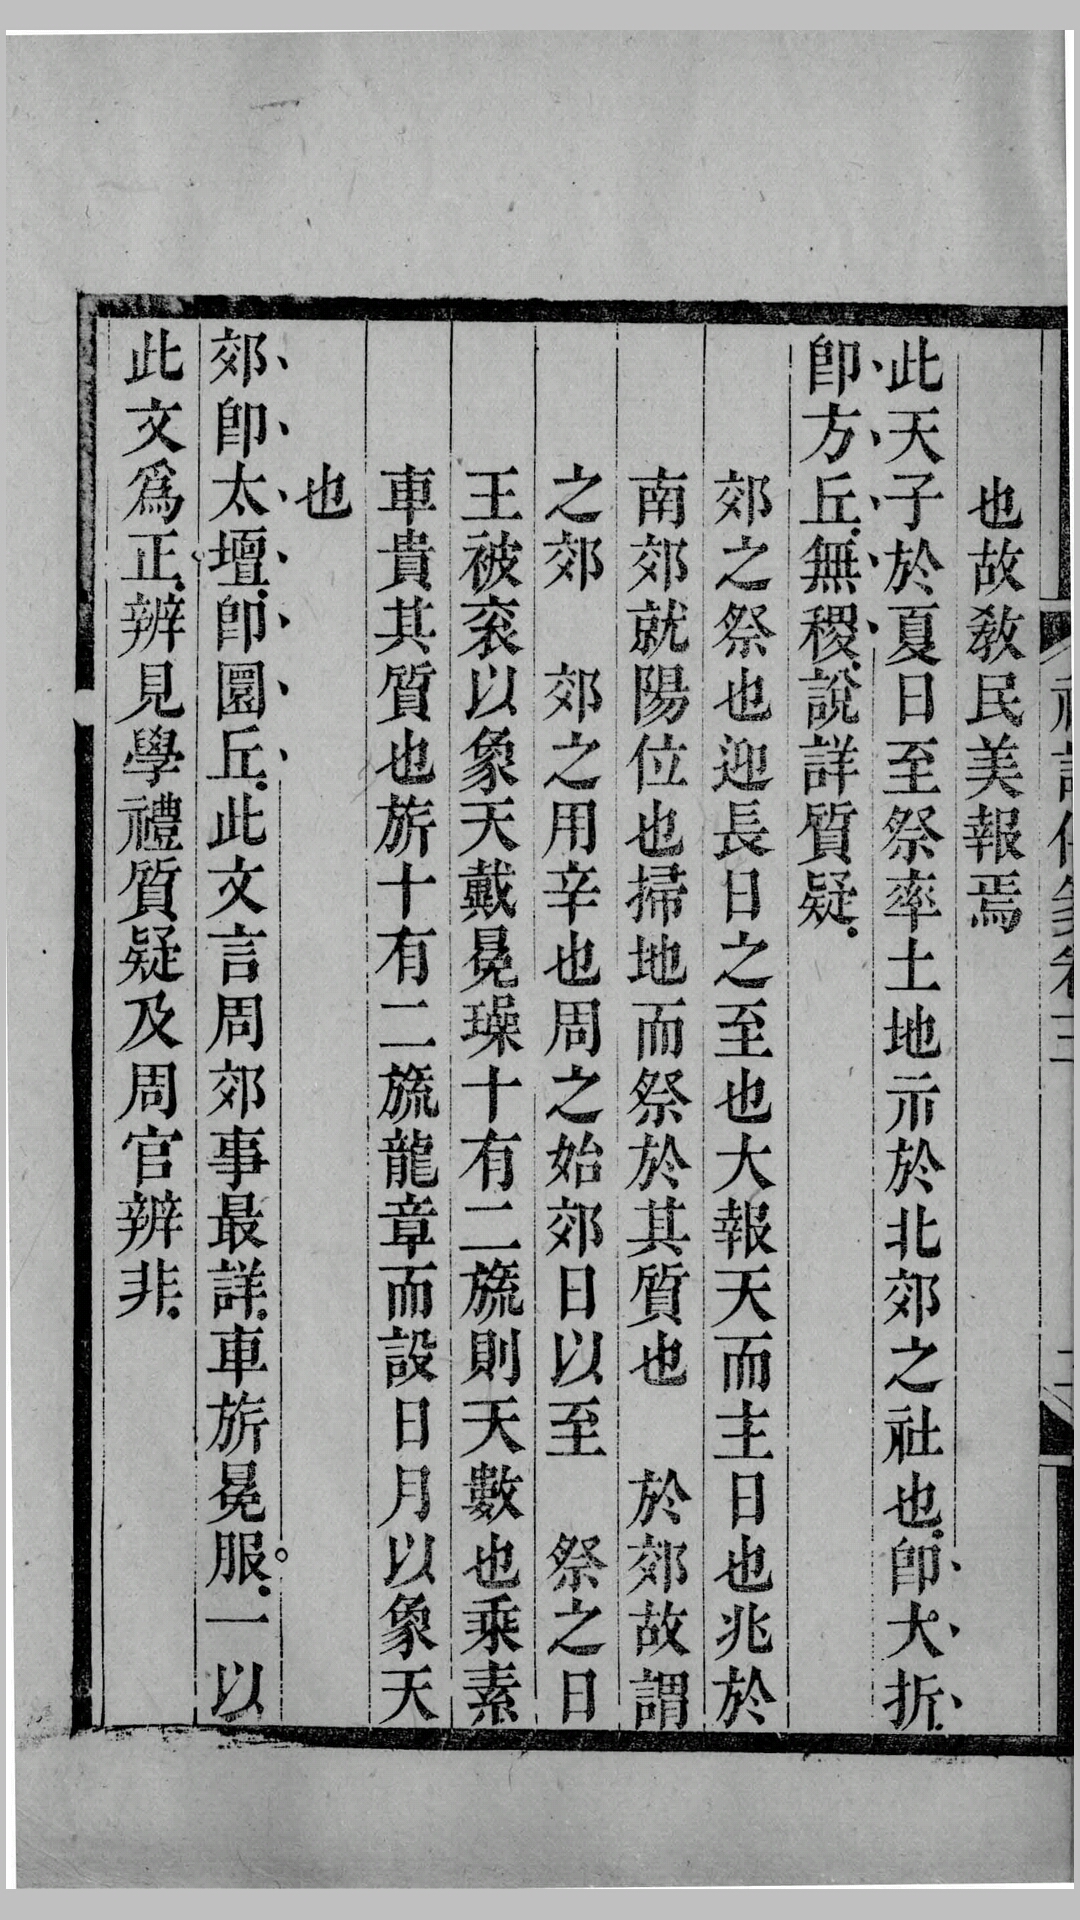 也故敎民美報焉
此天子於夏日至祭率土地示於北郊之社也卽大折
卽方丘無稷說詳質疑
郊之祭也迎長日之至也大報天而主日也兆於
南郊就陽位也掃地而祭於其質也　於郊故謂
之郊　郊之用辛也周之始郊日以至　祭之日
王被袞以象天戴冕璪十有二旒則天數也乘素
車貴其質也旂十有二旒龍章而設日月以象天
也
郊卽太壇卽圜丘此文言周郊事最詳車旂冕服一以
此文爲正辨見學禮質疑及周官辨非